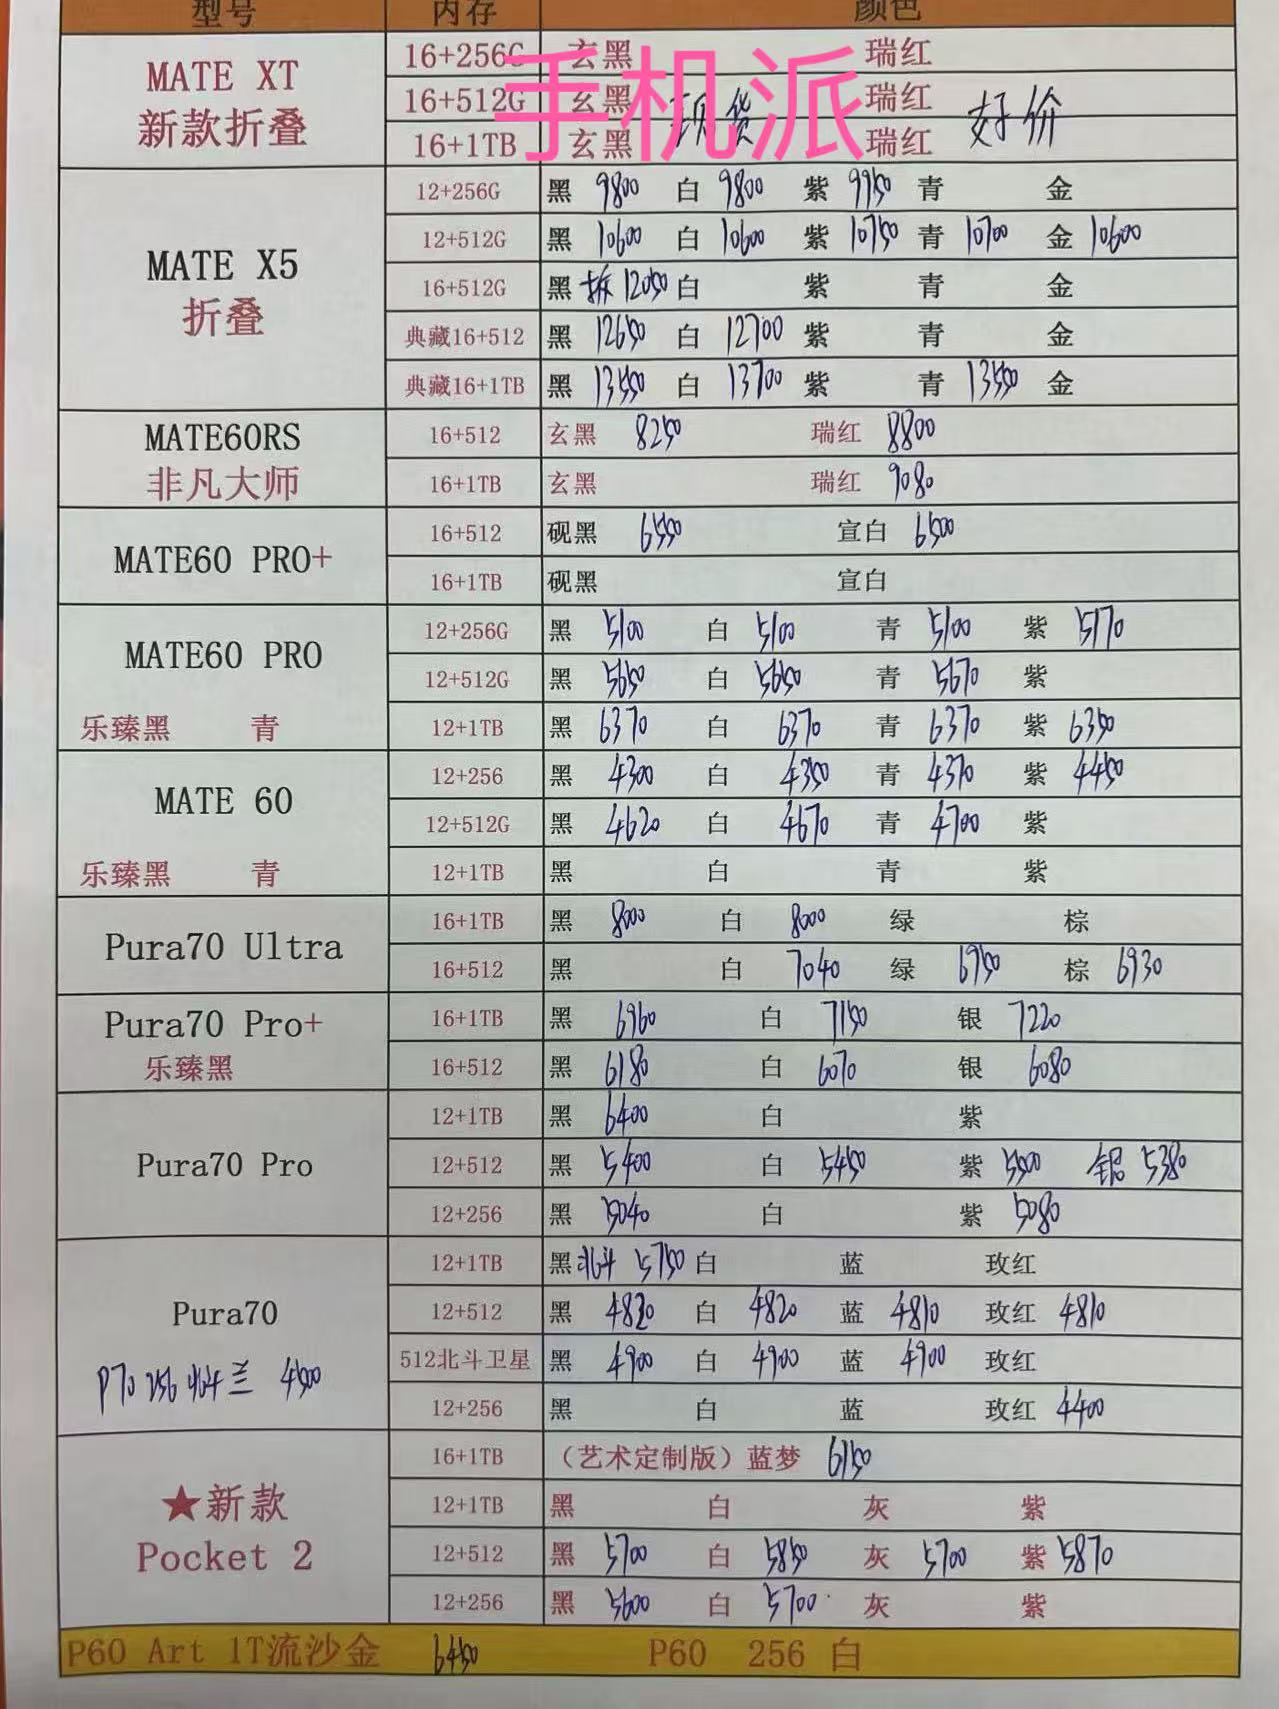 型号 内存 颜色
手机派
MATE XT 新款折叠
16+256G 玄黑 瑞红
16+512G 玄黑 现货 瑞红 好价
16+1TB 玄黑 瑞红
MATE X5 折叠
12+256G 黑 9800 白 9800 紫 9950 青 金
12+512G 黑 10600 白 10600 紫 10750 青 10700 金 10600
16+512G 黑 拆 12050 白 紫 青 金
典藏16+512 黑 12650 白 12700 紫 青 金
典藏16+1TB 黑 13550 白 13700 紫 青 13550 金
MATE60RS 非凡大师
16+512 玄黑 8250 瑞红 8800
16+1TB 玄黑 瑞红 9080
MATE60 PRO+
16+512 砚黑 6550 宣白 6500
16+1TB 砚黑 宣白
MATE60 PRO
乐臻黑 青
12+256G 黑 5100 白 5100 青 5100 紫 5170
12+512G 黑 5650 白 5650 青 5670 紫
12+1TB 黑 6370 白 6370 青 6370 紫 6350
MATE 60
乐臻黑 青
12+256 黑 4300 白 4350 青 4370 紫 4450
12+512G 黑 4620 白 4670 青 4700 紫
12+1TB 黑 白 青 紫
Pura70 Ultra
16+1TB 黑 8000 白 8000 绿 棕
16+512 黑 白 7040 绿 6950 棕 6930
Pura70 Pro+
乐臻黑
16+1TB 黑 6960 白 7150 银 7220
16+512 黑 6180 白 6070 银 6080
Pura70 Pro
12+1TB 黑 6400 白 紫
12+512 黑 5400 白 5450 紫 5500 银 5380
12+256 黑 5040 白 紫 5080
Pura70
P70 256 北斗兰 4500
12+1TB 黑 北斗 5750 白 蓝 玫红
12+512 黑 4820 白 4820 蓝 4810 玫红 4810
512北斗卫星 黑 4900 白 4900 蓝 4900 玫红
12+256 黑 白 蓝 玫红 4400
★新款
Pocket 2
16+1TB （艺术定制版）蓝梦 6150
12+1TB 黑 白 灰 紫
12+512 黑 5700 白 5850 灰 5700 紫 5870
12+256 黑 5600 白 5700 灰 紫
P60 Art 1T流沙金 6450 P60 256 白